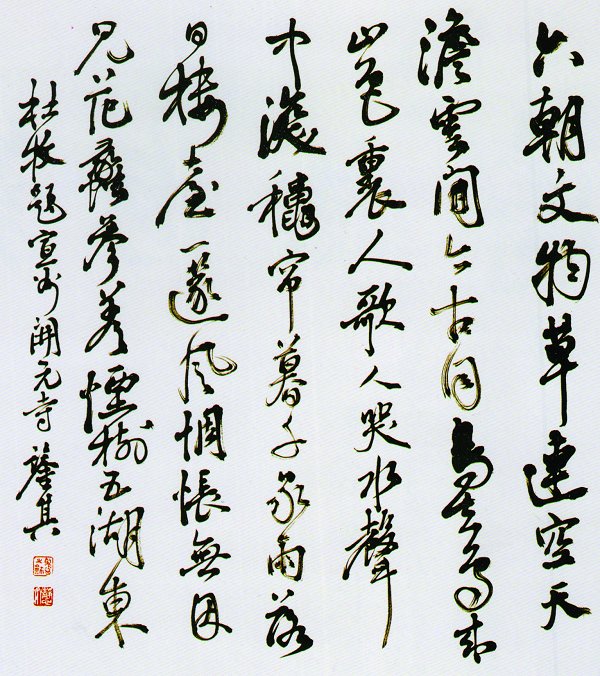 六朝文物草連空天
澹雲閒今古同鳥去鳥來
山色裏人歌人哭水聲
中深穐帘幕千家雨落
日樓臺一篴風惆悵無因
見范蠡參差煙樹五湖東
杜牧題宣州開元寺